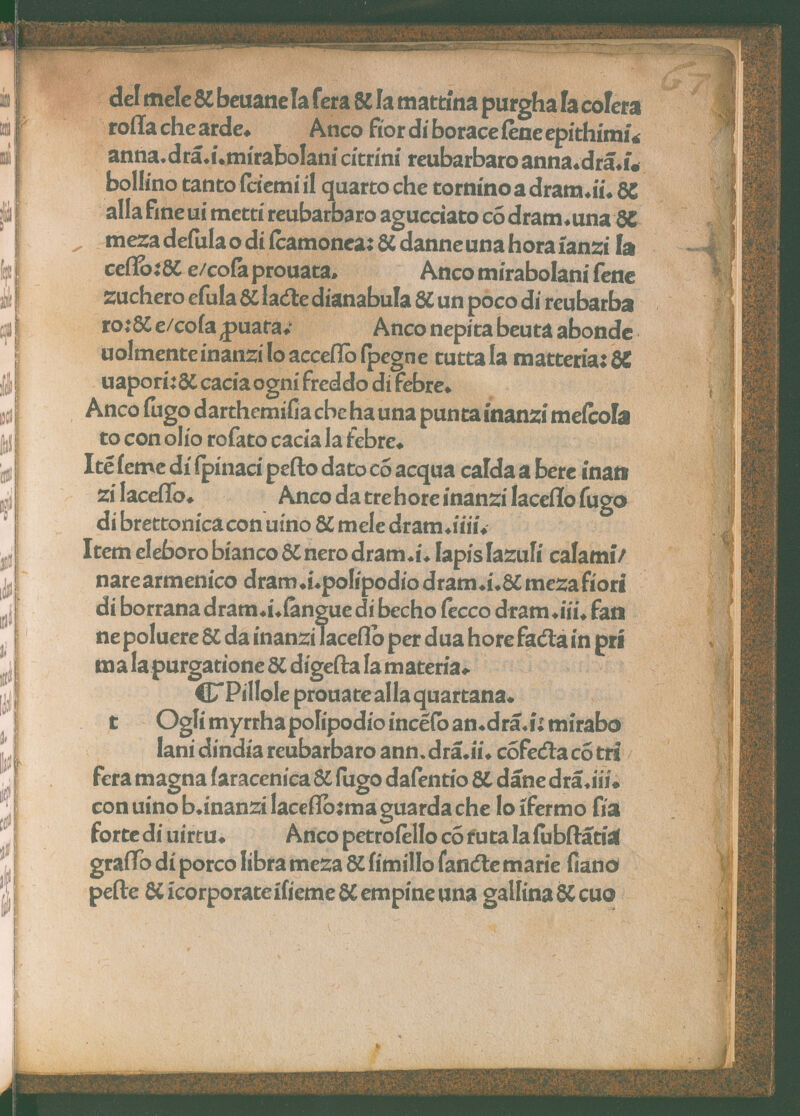 67
del mele & beuane la sera & la mattina purgha la colera
roſſa che arde. Anco fior di borace ſene epithimi.
anna.drã.i.mirabolani citrini reubarbaro anna.drã.i.
bollino tanto ſciemi il quarto che tornino a dram.ii. &
alla fine ui metti reubarbaro agucciato cõ dram.una &
meza deſula o di ſcamonea: & danne una hora ianzi la
ceſſo:& e/coſa prouata. Anco mirabolani ſene
zuchero eſula & lacte dianabula & un poco di reubarba
ro:& e/coſa ꝓuata. Anco nepita beuta abonde
uolmente inanzi lo acceſſo ſpegne tutta la matteria: &
uapori:& cacia ogni freddo di febre.
Anco ſugo darthemiſia che ha una punta inanzi meſcola
to con olio roſato cacia la febre.
Itē ſeme di ſpinaci peſto dato cõ acqua calda a bere inan
zi laceſſo. Anco da tre hore inanzi laceſſo ſugo
di brettonica con uino & mele dram.iiii.
Item eleboro bianco & nero dram.i. lapis lazuli calami/
nare armenico dram.i.polipodio dram.i.& meza fiori
di borrana dram.i.ſangue di becho ſecco dram.iii. fan
ne poluere & da inanzi laceſſo per dua hore facta in pri
ma la purgatione & digeſta la materia.
⸿ Pillole prouate alla quartana.
t Ogli myrrha polipodio incēſo an.drã.i: mirabo
lani dindia reubarbaro ann.drã.ii. cõfecta cõ tri
fera magna ſaracenica & ſugo daſentio & dãne drã.iii.
con uino b.inanzi laceſſo:ma guarda che lo ĩfermo ſia
forte di uirtu. Anco petroſello cõ tuta la ſubſtãtia
graſſo di porco libra meza & ſimillo ſancte marie ſiano
peſte & ĩcorporate iſieme & empine una gallina & cuo